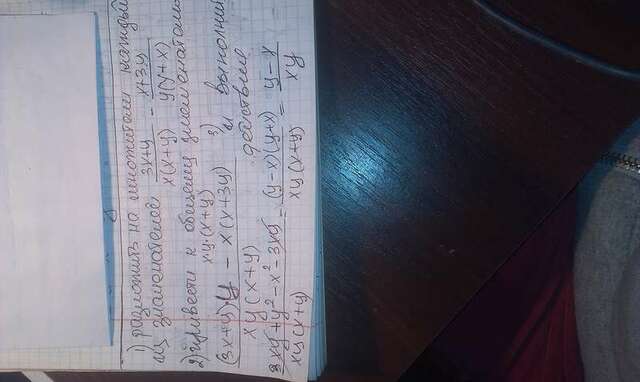 1) разложить на множители каждый
из знаменателей (3x+y)/(x(x+y)) - (x+3y)/(y(y+x))
2) привести к общему знаменателю
xy·(x+y) 3) и выполнить действия
((3x+y)y - x(x+3y))/(xy(x+y))
(3xy+y²-x²-3xy)/(xy(x+y)) = ((y-x)(y+x))/(xy(x+y)) = (y-x)/(xy)